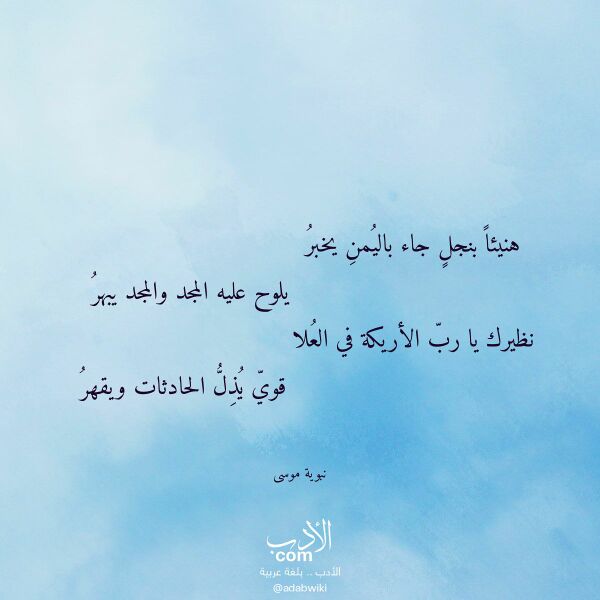 هنيئاً بنجلٍ جاء باليُمنِ يخبرُ
يلوح عليه المجد والمجد يبهرُ
نظيرك يا ربّ الأريكة في العُلا
قويّ يُذِلُّ الحادثات ويقهرُ
نبوية موسى
الأدب
com
الأدب .. بلغة عربية
@adabwiki